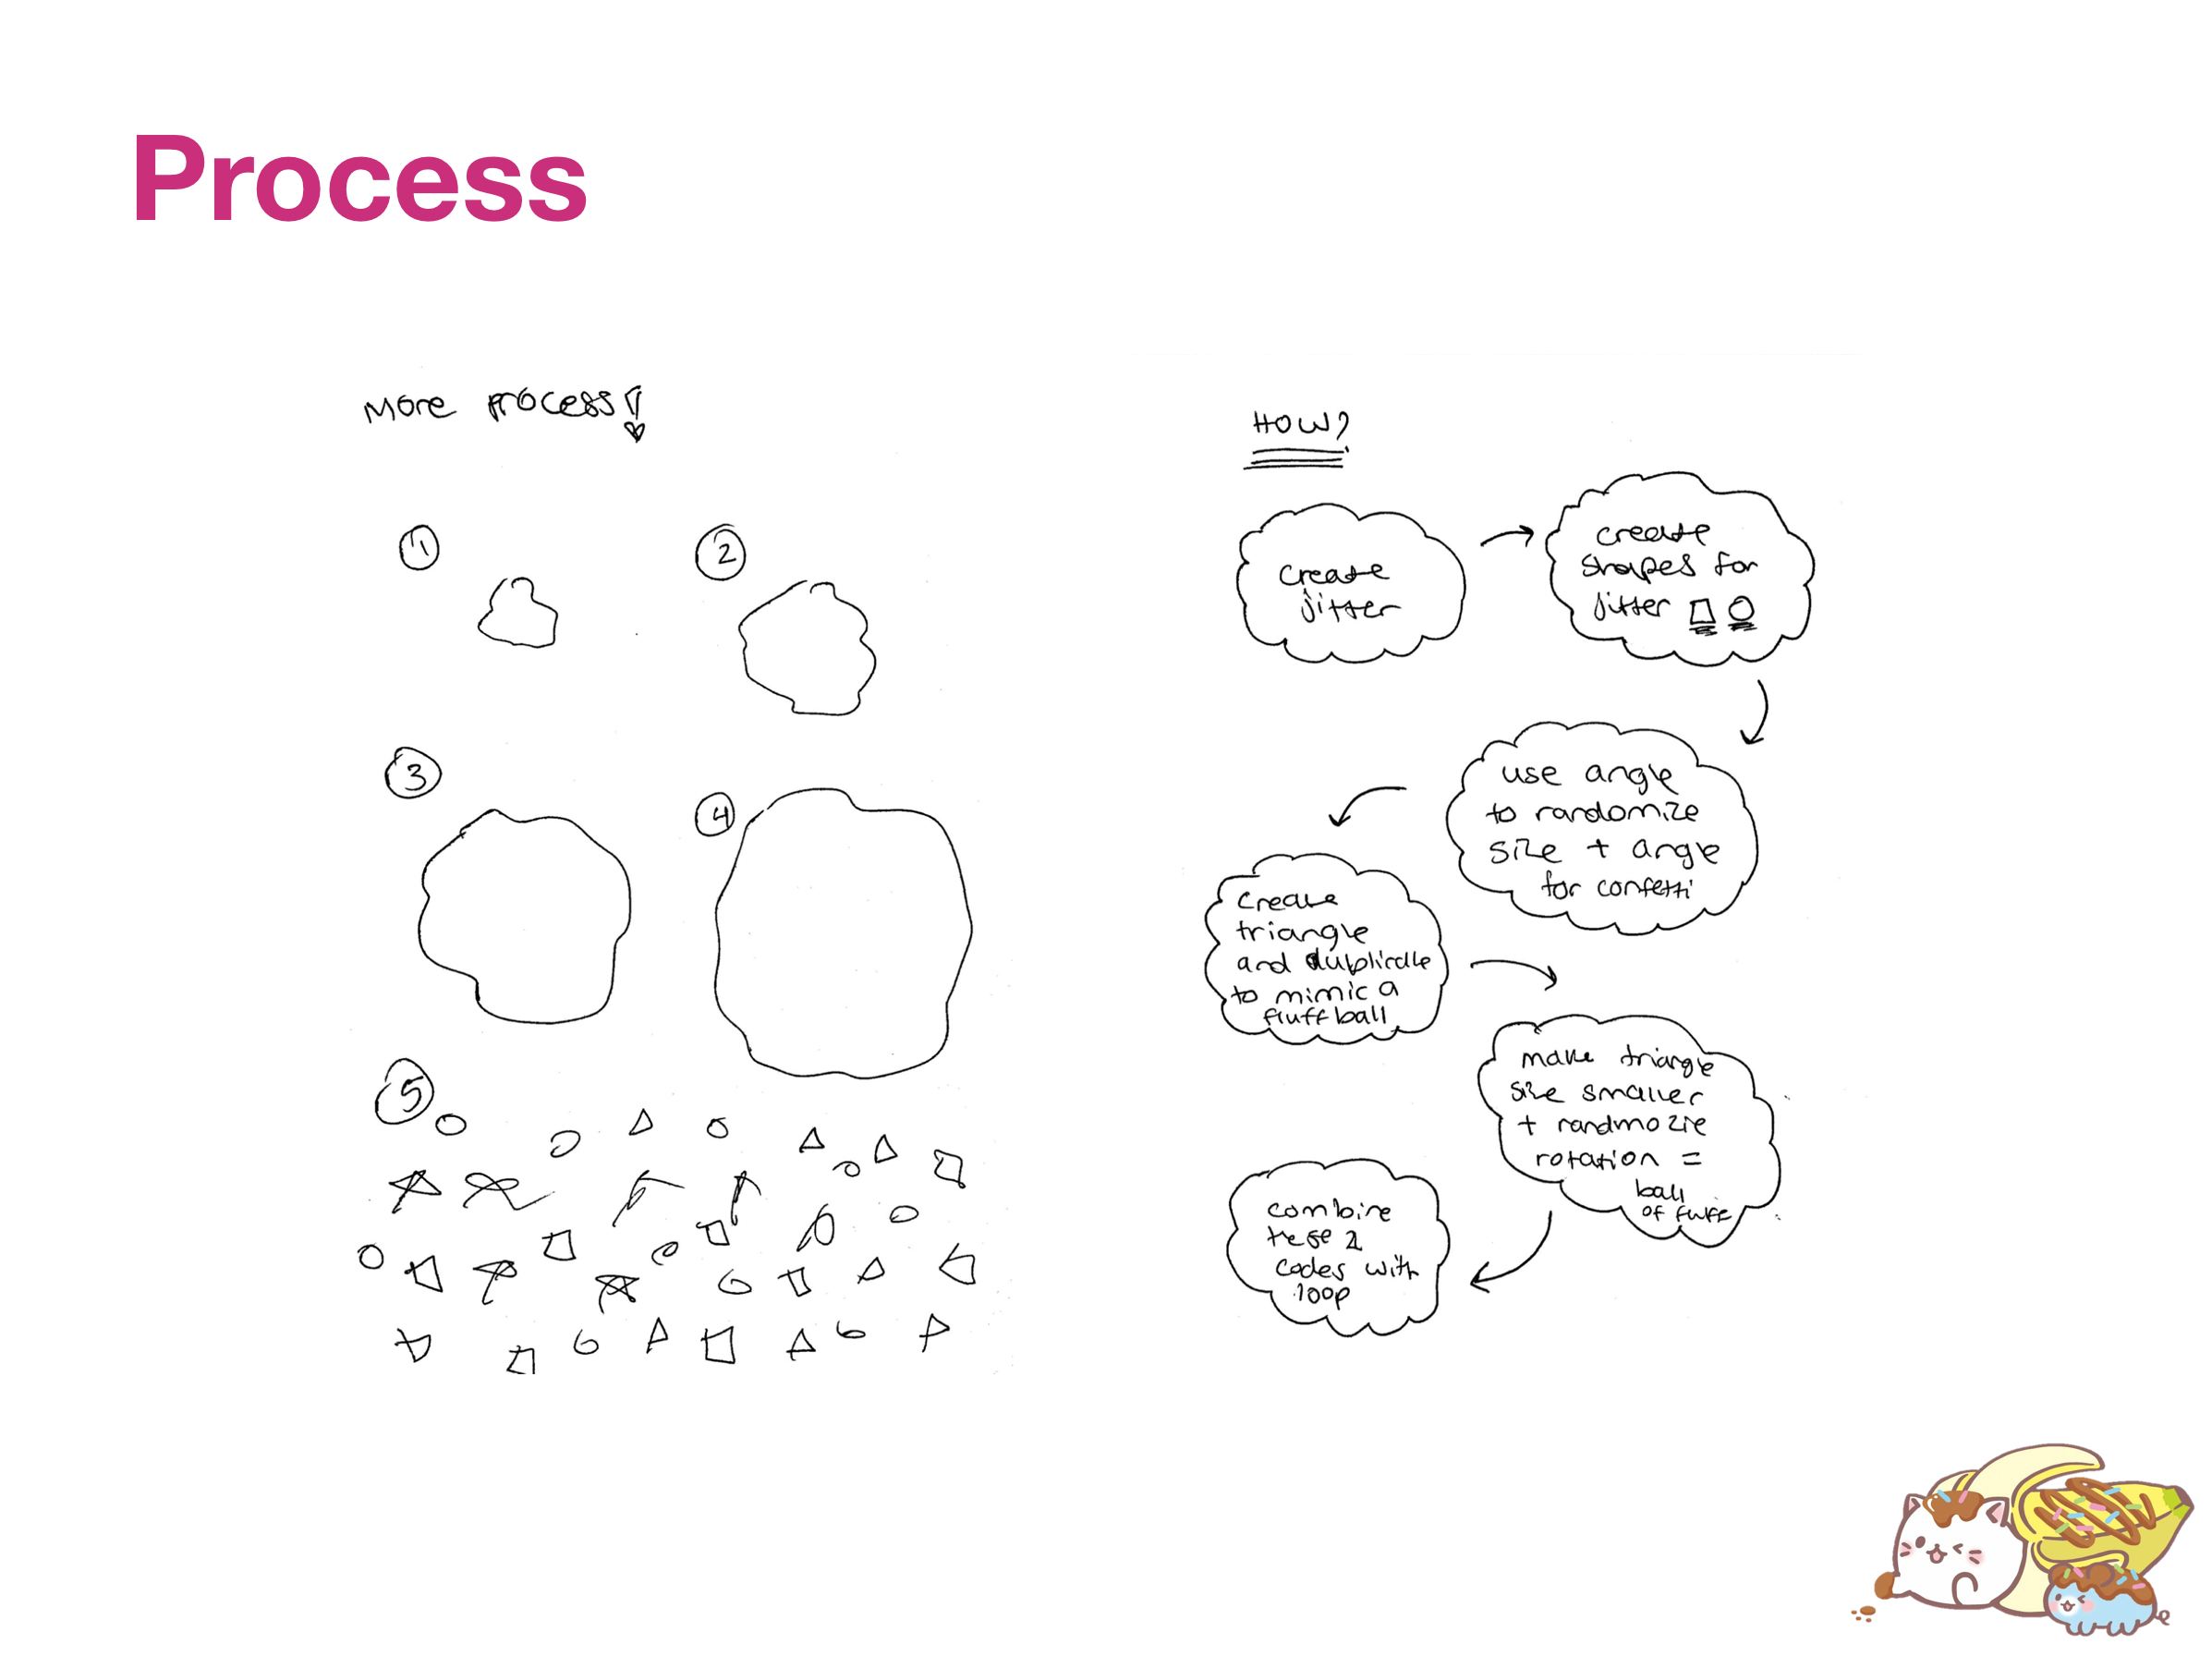 Process
More process!
1
2
3
4
5
HOW?
create
jitter
create
shapes for
jitter
use angle
to randomize
size + angle
for confetti
Create
triangle
and duplicate
to mimic a
fluff ball
make triangle
size smaller
+ randmozie
rotation =
ball
of fluff
combine
these 2
codes with
loop